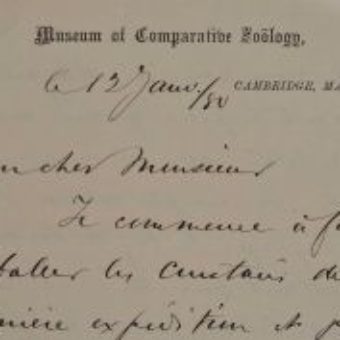 Museum of Comparative Zoölogy,
le 12 Janv/80 CAMBRIDGE, MA
n cher Monsieur
Je commence à
baller les Crustacés de
nière expédition et p